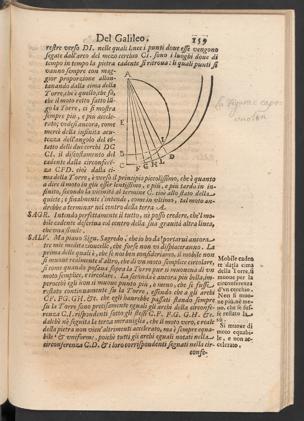 Del Galileo. 159
restre verso DI. nelle quali linee i punti doue esse vengono
segate dall'arco del mezo cerchio CI. sono i luoghi doue di
tempo in tempo la pietra cadente si ritroua: li quali punti si
vanno sempre con mag-
gior proporzione allon-
tanando dalla cima della
Torre, che è quello, che fa,
che il moto retto fatto lun-
go la Torre, ci si mostra
sempre più, e più accele-
rato; vedesi ancora, come
mercè della infinita acu-
tezza dell'angolo del con-
tatto delli due cerchi DC
CI. il discostamento del
cadente dalla circonferen-
za CFD. cioè dalla ci-
ma della Torre, è verso il principio piccolissimo, che è quanto
a dire il moto in giù esser lentissimo, e più, e più tardo in in-
finito, secondo la vicinità al termine C. cioè allo stato della
quiete; e finalmente s'intende, come in vltimo, tal moto an-
drebbe a terminar nel centro della terra A.
SAGR. Intendo perfettamente il tutto, nè posso credere, che'l mo-
bile cadente descriua col centro della sua grauità altra linea,
che vna simile.
SALV. Ma piano Sign. Sagredo, ch'io hò da portarui ancora
tre mie meditazioncelle, che forse non vi dispiaceranno. La
prima delle quali è, che se noi ben consideriamo, il mobile non
si muoue realmente d'altro, che di vn moto semplice circolare,
si come quando posaua sopra la Torre pur si moueua di vn
moto semplice, e circolare. La seconda è ancora più bella, im-
peroché egli non si muoue punto più, o meno, che se fusse
restato continuamente sù la Torre, essendo che a gli archi
CF. FG. GH. &c. che egli haurebbe passati stando sempre
sù la Torre, sono precisamente eguali gli archi della circonferenza
CI. rispondenti sotto gli stessi CF. FG. GH. &c.
dal che ne seguita la terza merauiglia, che il moto vero, e reale
della pietra non vien' altrimenti accelerato, ma è sempre equa-
bile, & vniforme, poiche tutti gli archi eguali notati nella
circonferenza CD. & i loro corrispondenti segnati nella cir-
confe-
A
E
B
C
F G H L D
I
Mobile caden-
te dalla cima
della Torre, si
muoue per la
circonferenza
d'vn cerchio.
Non si muo-
ue più, nè me-
no, che se fus-
se restato la-
sù.
Si muoue di
moto equabi-
le, e non ac-
celerato.